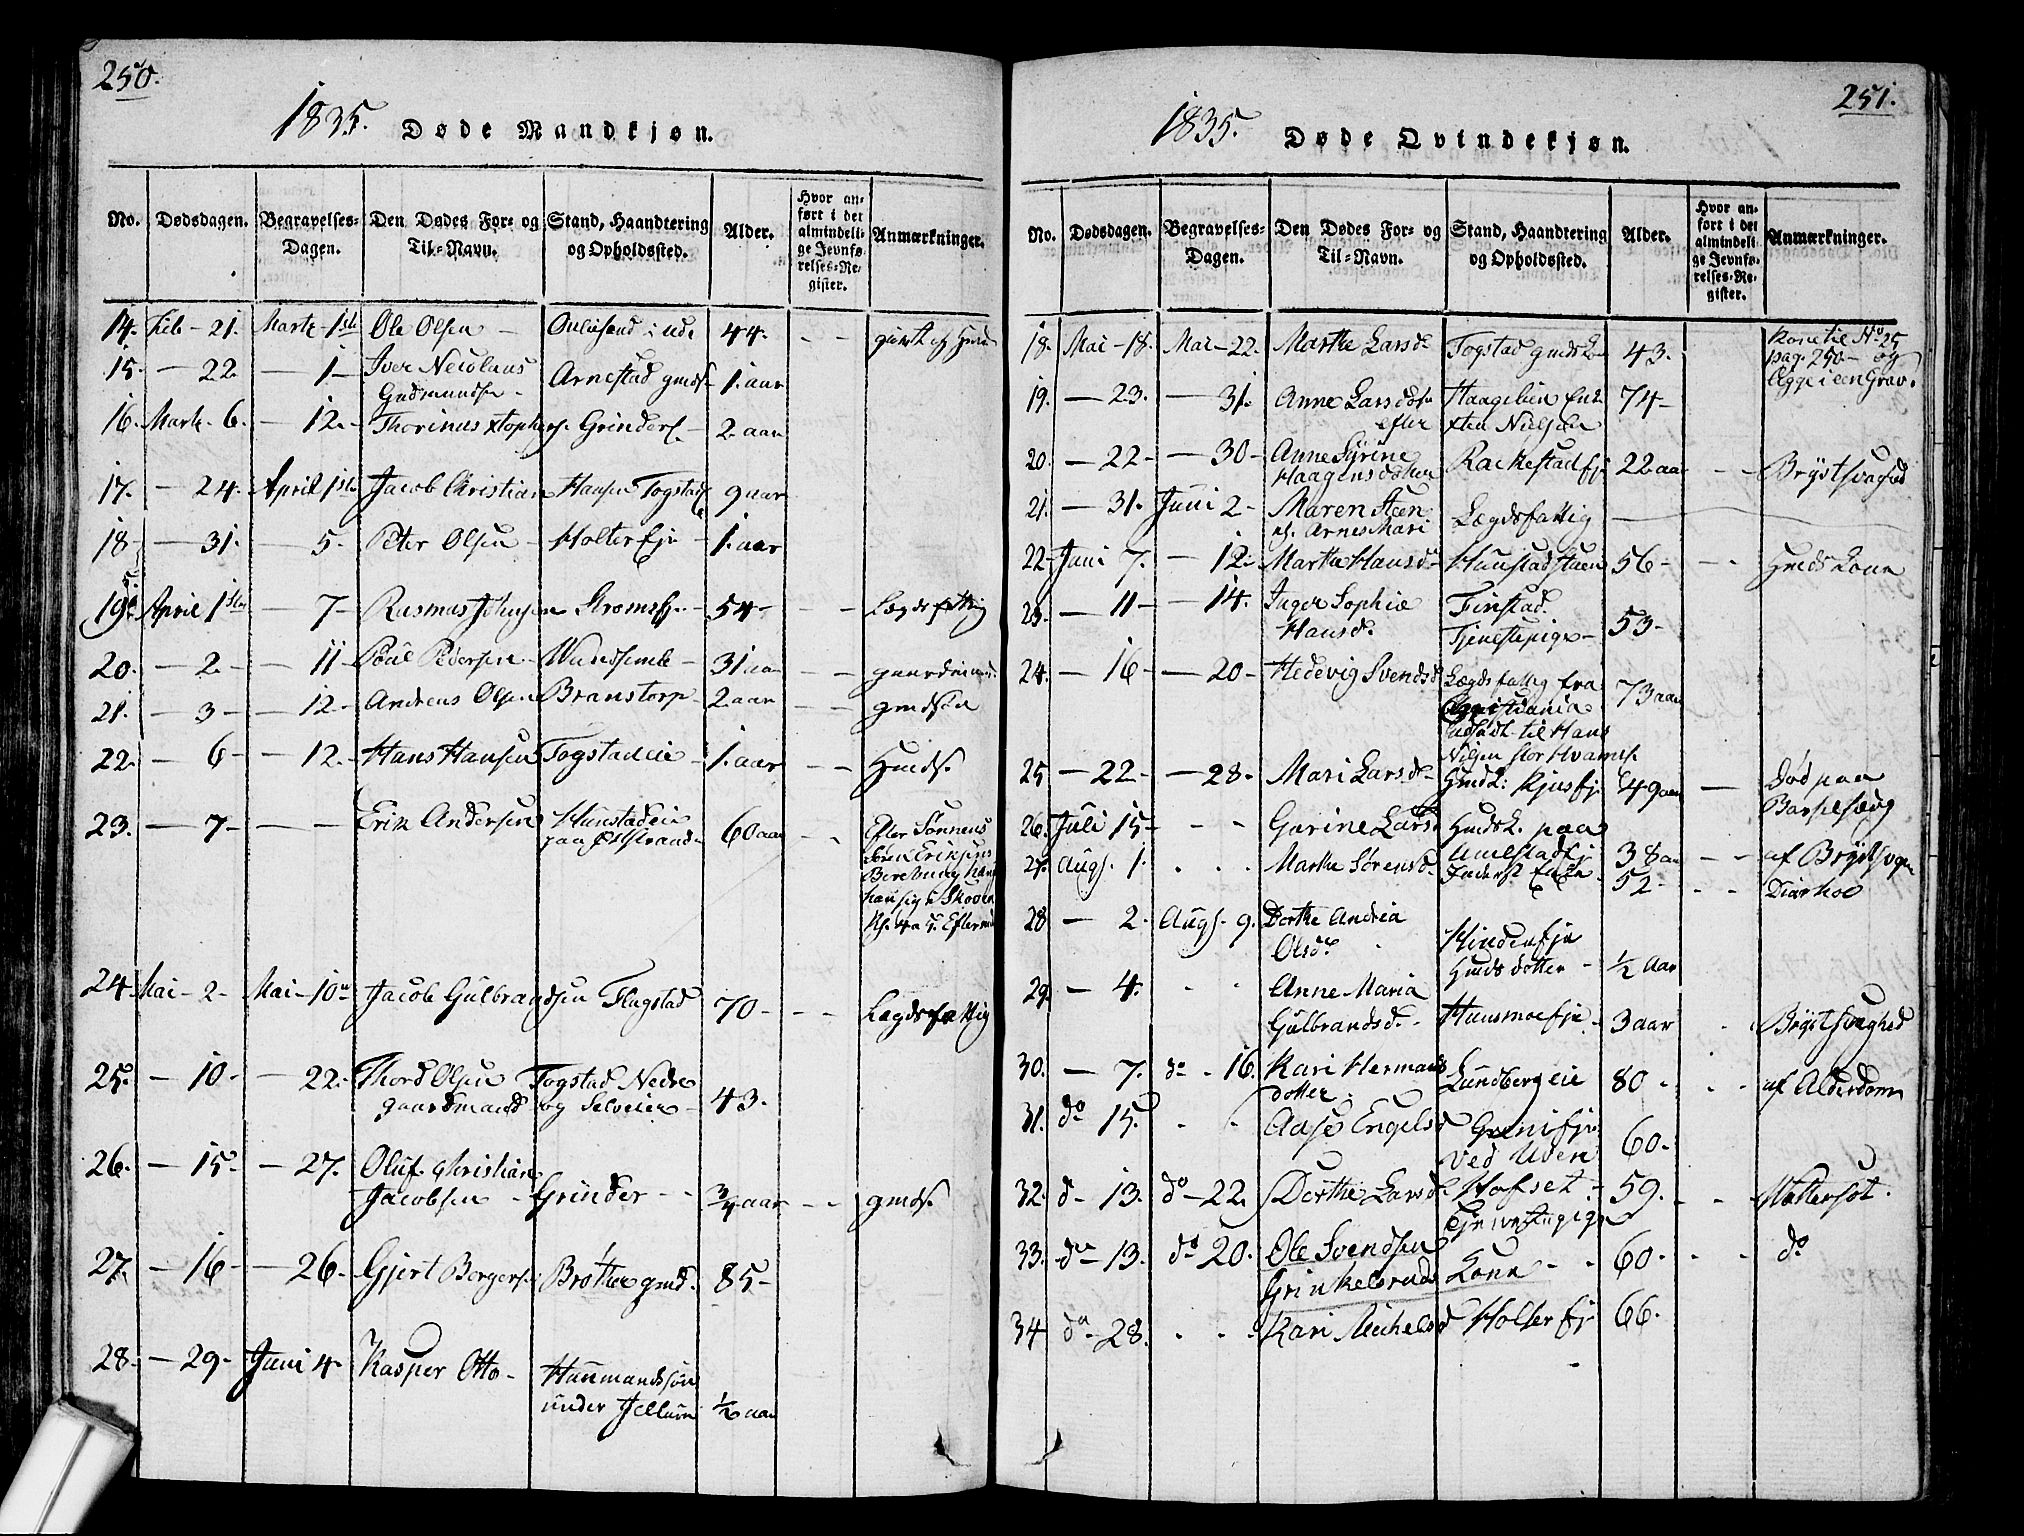 250.
1835. Døde Mandkjøn.
No. Dødsdagen. Begravelses-Dagen. Den Dødes For- og Til-Navn. Stand, Haandtering og Opholdssted. Alder. Hvor anført i det almindelige Jevnførelses-Register. Anmærkninger.
14. Feb - 21. Marts - 1ste Ole Olsen - 44. - -
15. - 22. - 1 - Iver Nicolaus Arnestad gmds. 1. aar
Gudmundsen -
16. Marts. 6. - 12. - Thorinus xtophers. Grinders. - 2 aar
17. - 24. April 1ste Jacob Christian Hansen Togstad 9 aar
18 - 31. - 5. - Peter Olsen - Holter Eje - 1. aar
19. April 1ste - 7 - Rasmus Johnsen 54 - - - Lægdsfattig
20. - 2 - - 11 Poul Pedersen - 31 aa - -
21. - 3 - - 12 - Andreas Olsen Branstorp - 2 aar - - gmdsøn
22. - 6 - - 12. - Hans Hansen Togstadeie - 1. aar - - Hmds.
23. - 7 - - - Erik Andersen Hunstadeie 60 aar - Efter Sønnens
paa Øststrand Søren Eriksens
i Skoven
24. Mai - 2 - Mai - 10n Jacob Gulbrandsen Flagstad 70 - - - Lægdsfattig
25. - 10 - - 22. - Thord Olsen Togstad Nedre 43.
gaardmand og Selveier -
26. - 15 - - 27. Oluf Christian
Jacobsen - Grinder - - 3/4 aar - - gmds.
27. - 16 - 26 - Gjert Bergersen Brøther gmd. 85 -
28. - 29 - Juni 4 - Kasper Otto - Huusmandsøn
under Jellum 1/2 aar
251.
1835. Døde Qvindekjøn.
No. Dødsdagen. Begravelses-Dagen. Den Dødes For- og Til-Navn. Stand, Haandtering og Opholdssted. Alder. Hvor anført i det almindelige Jevnførelses-Register. Anmærkninger.
18. Mai - 18. Mai - 22. Marthe Larsd. Togstad gmds K 43. Kone til No 25
pag. 250 - og
i een Grav.
19. - 23. - 31. Anne Larsdtr Haagelien Enke 74 -
efter xten Nielsen
20. - 22 - - 30 - Anne Syrine Rakkestadeje 22 aar - - Brystsvaghed
Haagensdatter
21. - 31. Juni 2 - Maren Steen Lægdsfattig -
Arnes Mari
22. Juni 7. - 12 - Marthe Hansd. Hunstadstuen 56 - - - Hmds Kone
23. - 11 - - 14. Inger Sophie Finstad
Hansd. Tjenestepige - 53 -
24. - 16 - - 20 - Hedevig Svendsd. Lægdsfattig fra 73 aar
Christiania
udsadt til Hans
Nilsen Stor Hvams.
25 - 22 - - 28. - Mari Larsd. - Hmds K: Kjus eje 49 aar - Død paa
Barselseng
26. Juli 15 - - - Gurine Larsd. Hmds K. paa
Aulestad eje 38 aar - - af Brystsvagh.
27. Augs. 1. . . . Marthe Sørensd. Enke 52 - - - Diarhoe
28 - 2. Augs. 9. Dorthe Andrea
Olsd. Hinden eje
Hmds dotter - 1/2 Aar
29 - 4. - - Anne Maria
Gulbrandsd. - Huusmoe eje - 3 aar - Brystsvaghed
30. - 7. do - 16. Kari Hermans Lundberg eie 80 - - - af Alderdom
dotter.
31. do 15. - - Aase Engelsd Grini eje 60.
ved Uven
32. d - 13. do - 22. Dorthe Larsd. Hofset - 59. - - Vattersot.
Tjenestepige
33. do - 13. do 20. Ole Svendsen
Grinkelsruds Kone - - 60 - - - do
34 do - 28. . . . Kari Michelsd Holter Eje 66.